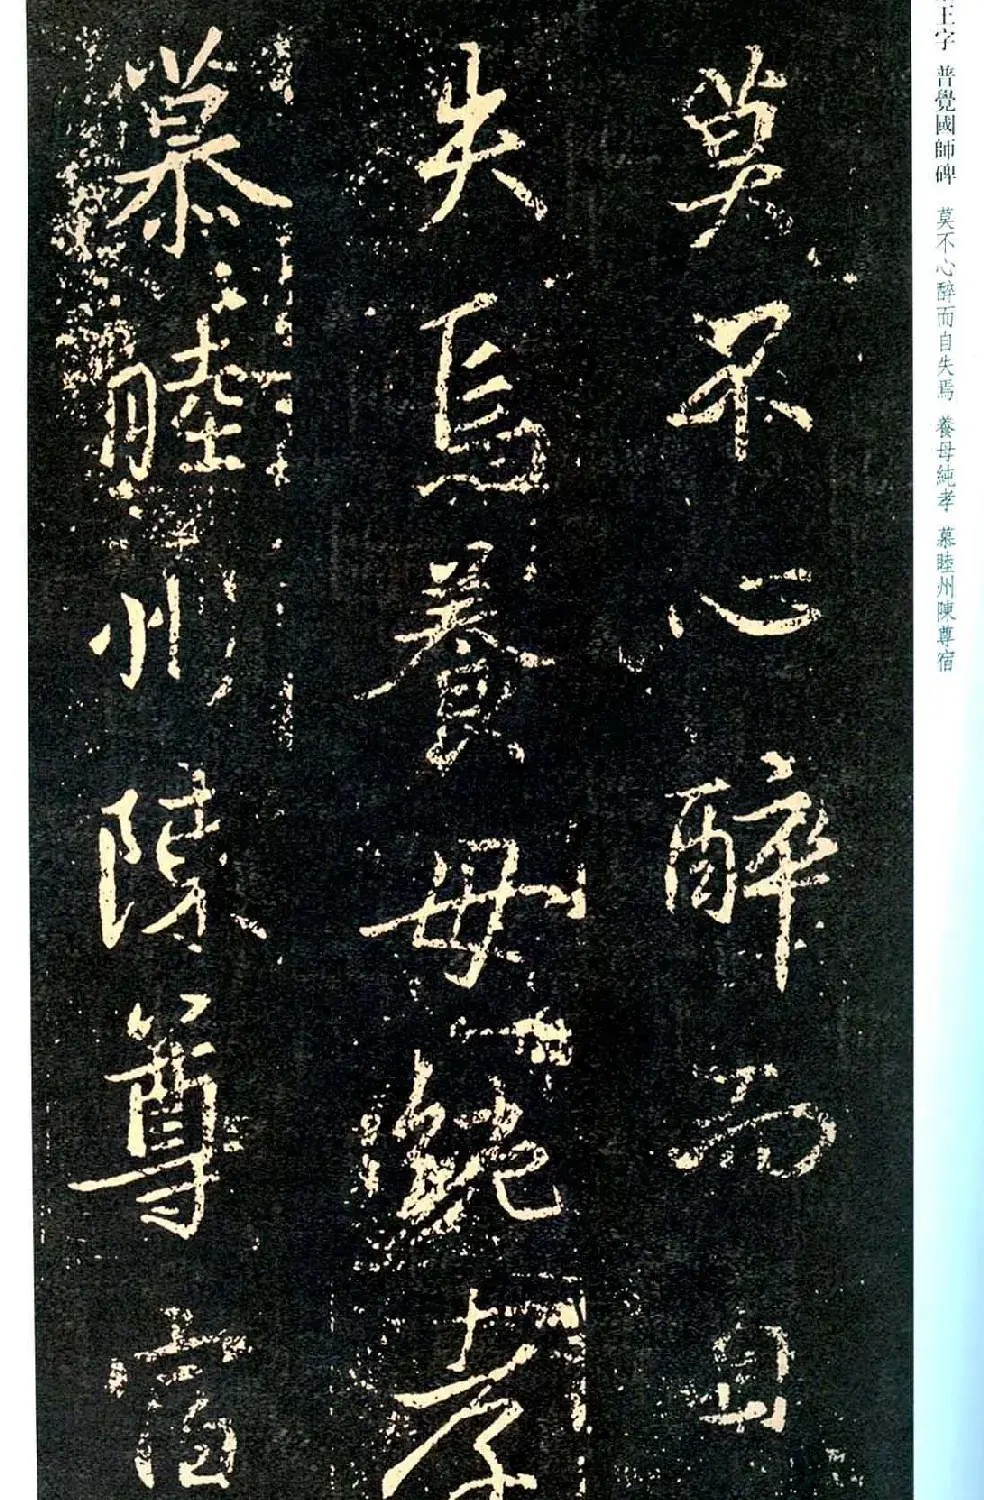 莫不心醉而自
失焉養母純孝
慕睦州陳尊宿
王字 普覺國師碑 莫不心醉而自失焉 養母純孝 慕睦州陳尊宿